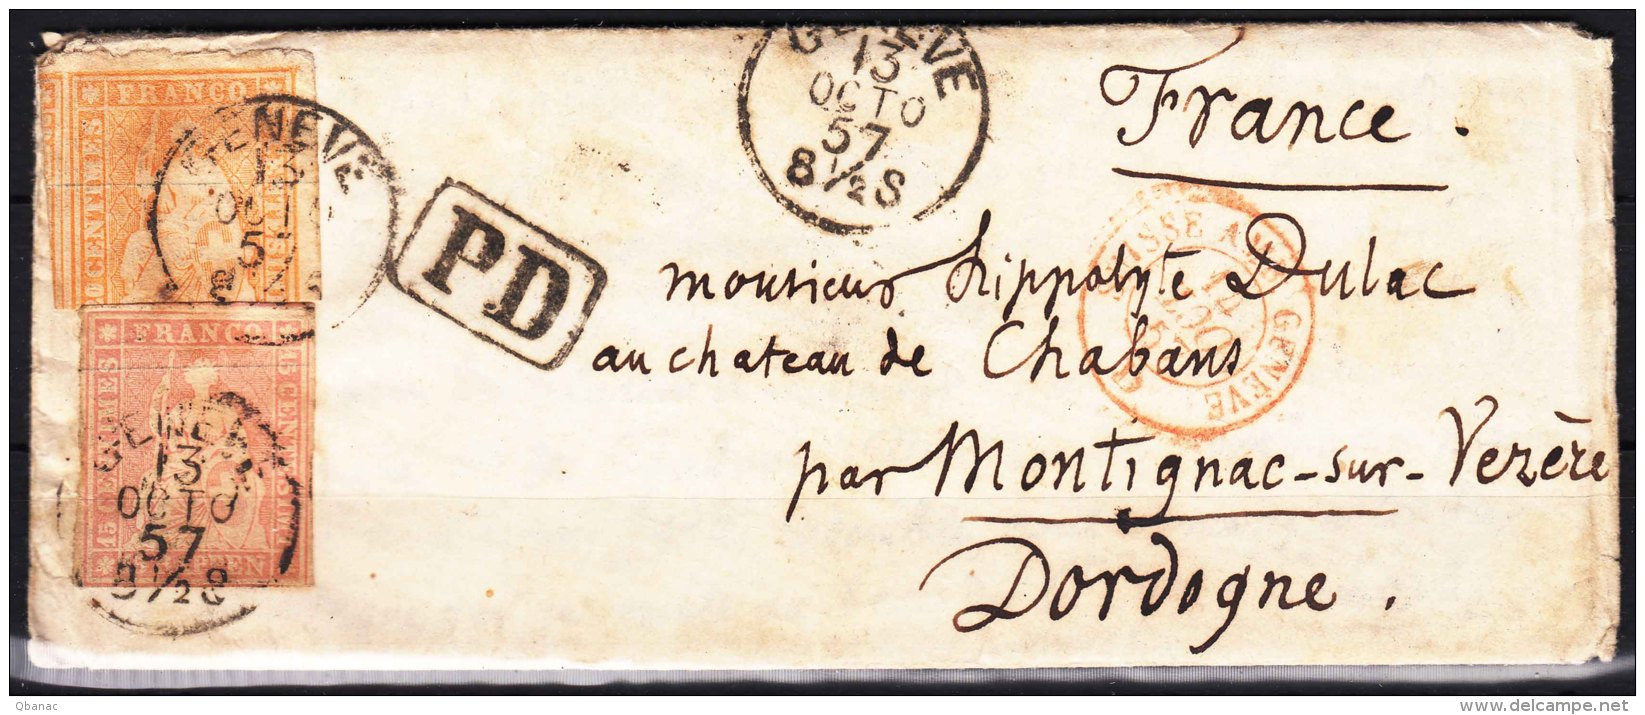 FRANCO
20 CENTIMES
GENEVE
13
OCTO
57
8½S
GENEVE
13
OCTO
57
8½S
PD
FRANCO
15 CENTIMES
15 CENT
GENEVE
13
OCTO
57
8½S
France.
SUISSE
GENÈVE
monsieur Hippolyte Dulac
au chateau de Chabans
par Montignac-sur-Vezère
Dordogne.
Qbanac
delcampe.net